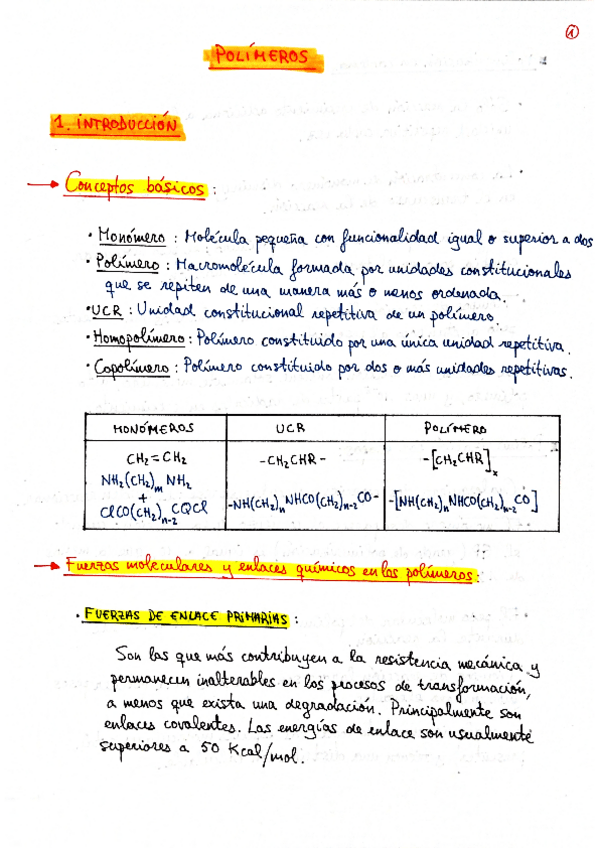 1
POLÍMEROS
1. INTRODUCCIÓN
→ Conceptos básicos :
· Monómero : Molécula pequeña con funcionalidad igual o superior a dos
· Polímero : Macromolécula formada por unidades constitucionales
que se repiten de una manera más o menos ordenada.
· UCR : Unidad constitucional repetitiva de un polímero
· Homopolímero : Polímero constituido por una única unidad repetitiva.
· Copolímero : Polímero constituido por dos o más unidades repetitivas.
MONÓMEROS UCR POLÍMERO
CH₂=CH₂ -CH₂CHR- -[CH₂CHR]ₓ
NH₂(CH₂)ₘ NH₂
+
ClCO(CH₂)ₙ₋₂ COCl -NH(CH₂)ₙNHCO(CH₂)ₙ₋₂CO- -[NH(CH₂)ₙNHCO(CH₂)ₙ₋₂CO]
→ Fuerzas moleculares y enlaces químicos en los polímeros:
· FUERZAS DE ENLACE PRIMARIAS :
Son las que más contribuyen a la resistencia mecánica y
permanecen inalterables en los procesos de transformación,
a menos que exista una degradación. Principalmente son
enlaces covalentes. Las energías de enlace son usualmente
superiores a 50 Kcal/mol.